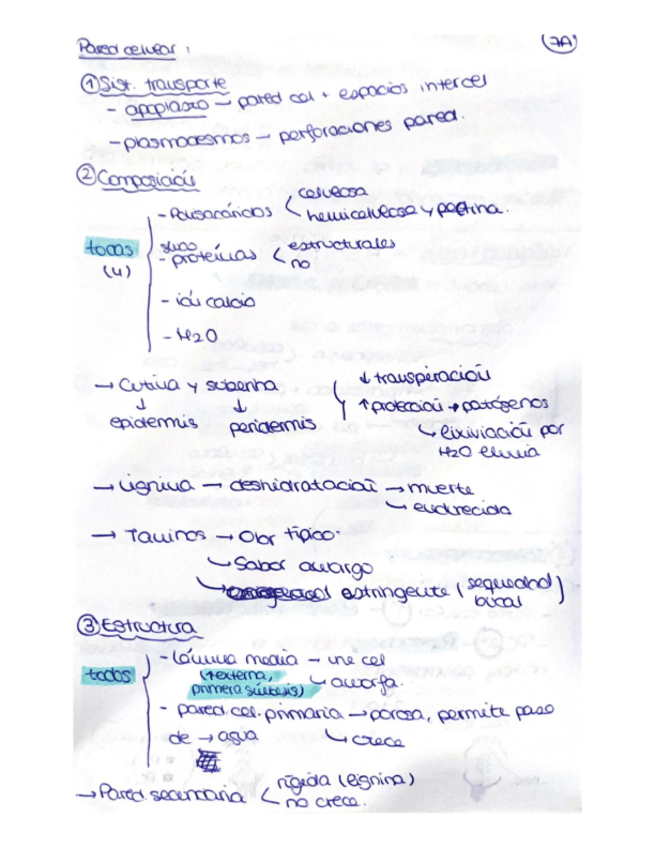 Pared celular: 7A
① Sist. transporte
- apoplasto - pared cel + espacios intercel
- plasmodesmos - perforaciones pared.
② Composición
todas (4)
- Polisacáridos < celulosa
hemicelulosa y pectina.
- proteínas < estructurales
no
- ión calcio
- H2O
→ Cutina y suberina
↓ epidermis ↓ peridermis
↓ transpiración
↑ protección → patógenos
↳ lixiviación por
H2O lluvia
→ Lignina → deshidratación → muerte
↳ endurecida
→ Taninos → Olor típico.
↳ Sabor amargo
↳ astringente (sequedad
bucal)
③ Estructura
todos
- lámina media → une cel
(+externa,
primera síntesis) ↳ amorfa.
- pared cel. primaria → porosa, permite paso
de → agua ↳ crece
→ Pared secundaria < rígida (lignina)
no crece.